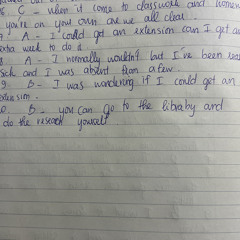 C - when it come to classwork and homew
you're on your own are we all clear.
A - I could get an extension can I get an
extra week to do it
8 A - I normally wouldn't but I've been
sick and I was absent from a few
9 B - I was wandering if I could get an
extension.
B - you can go to the library and
do the research yourself